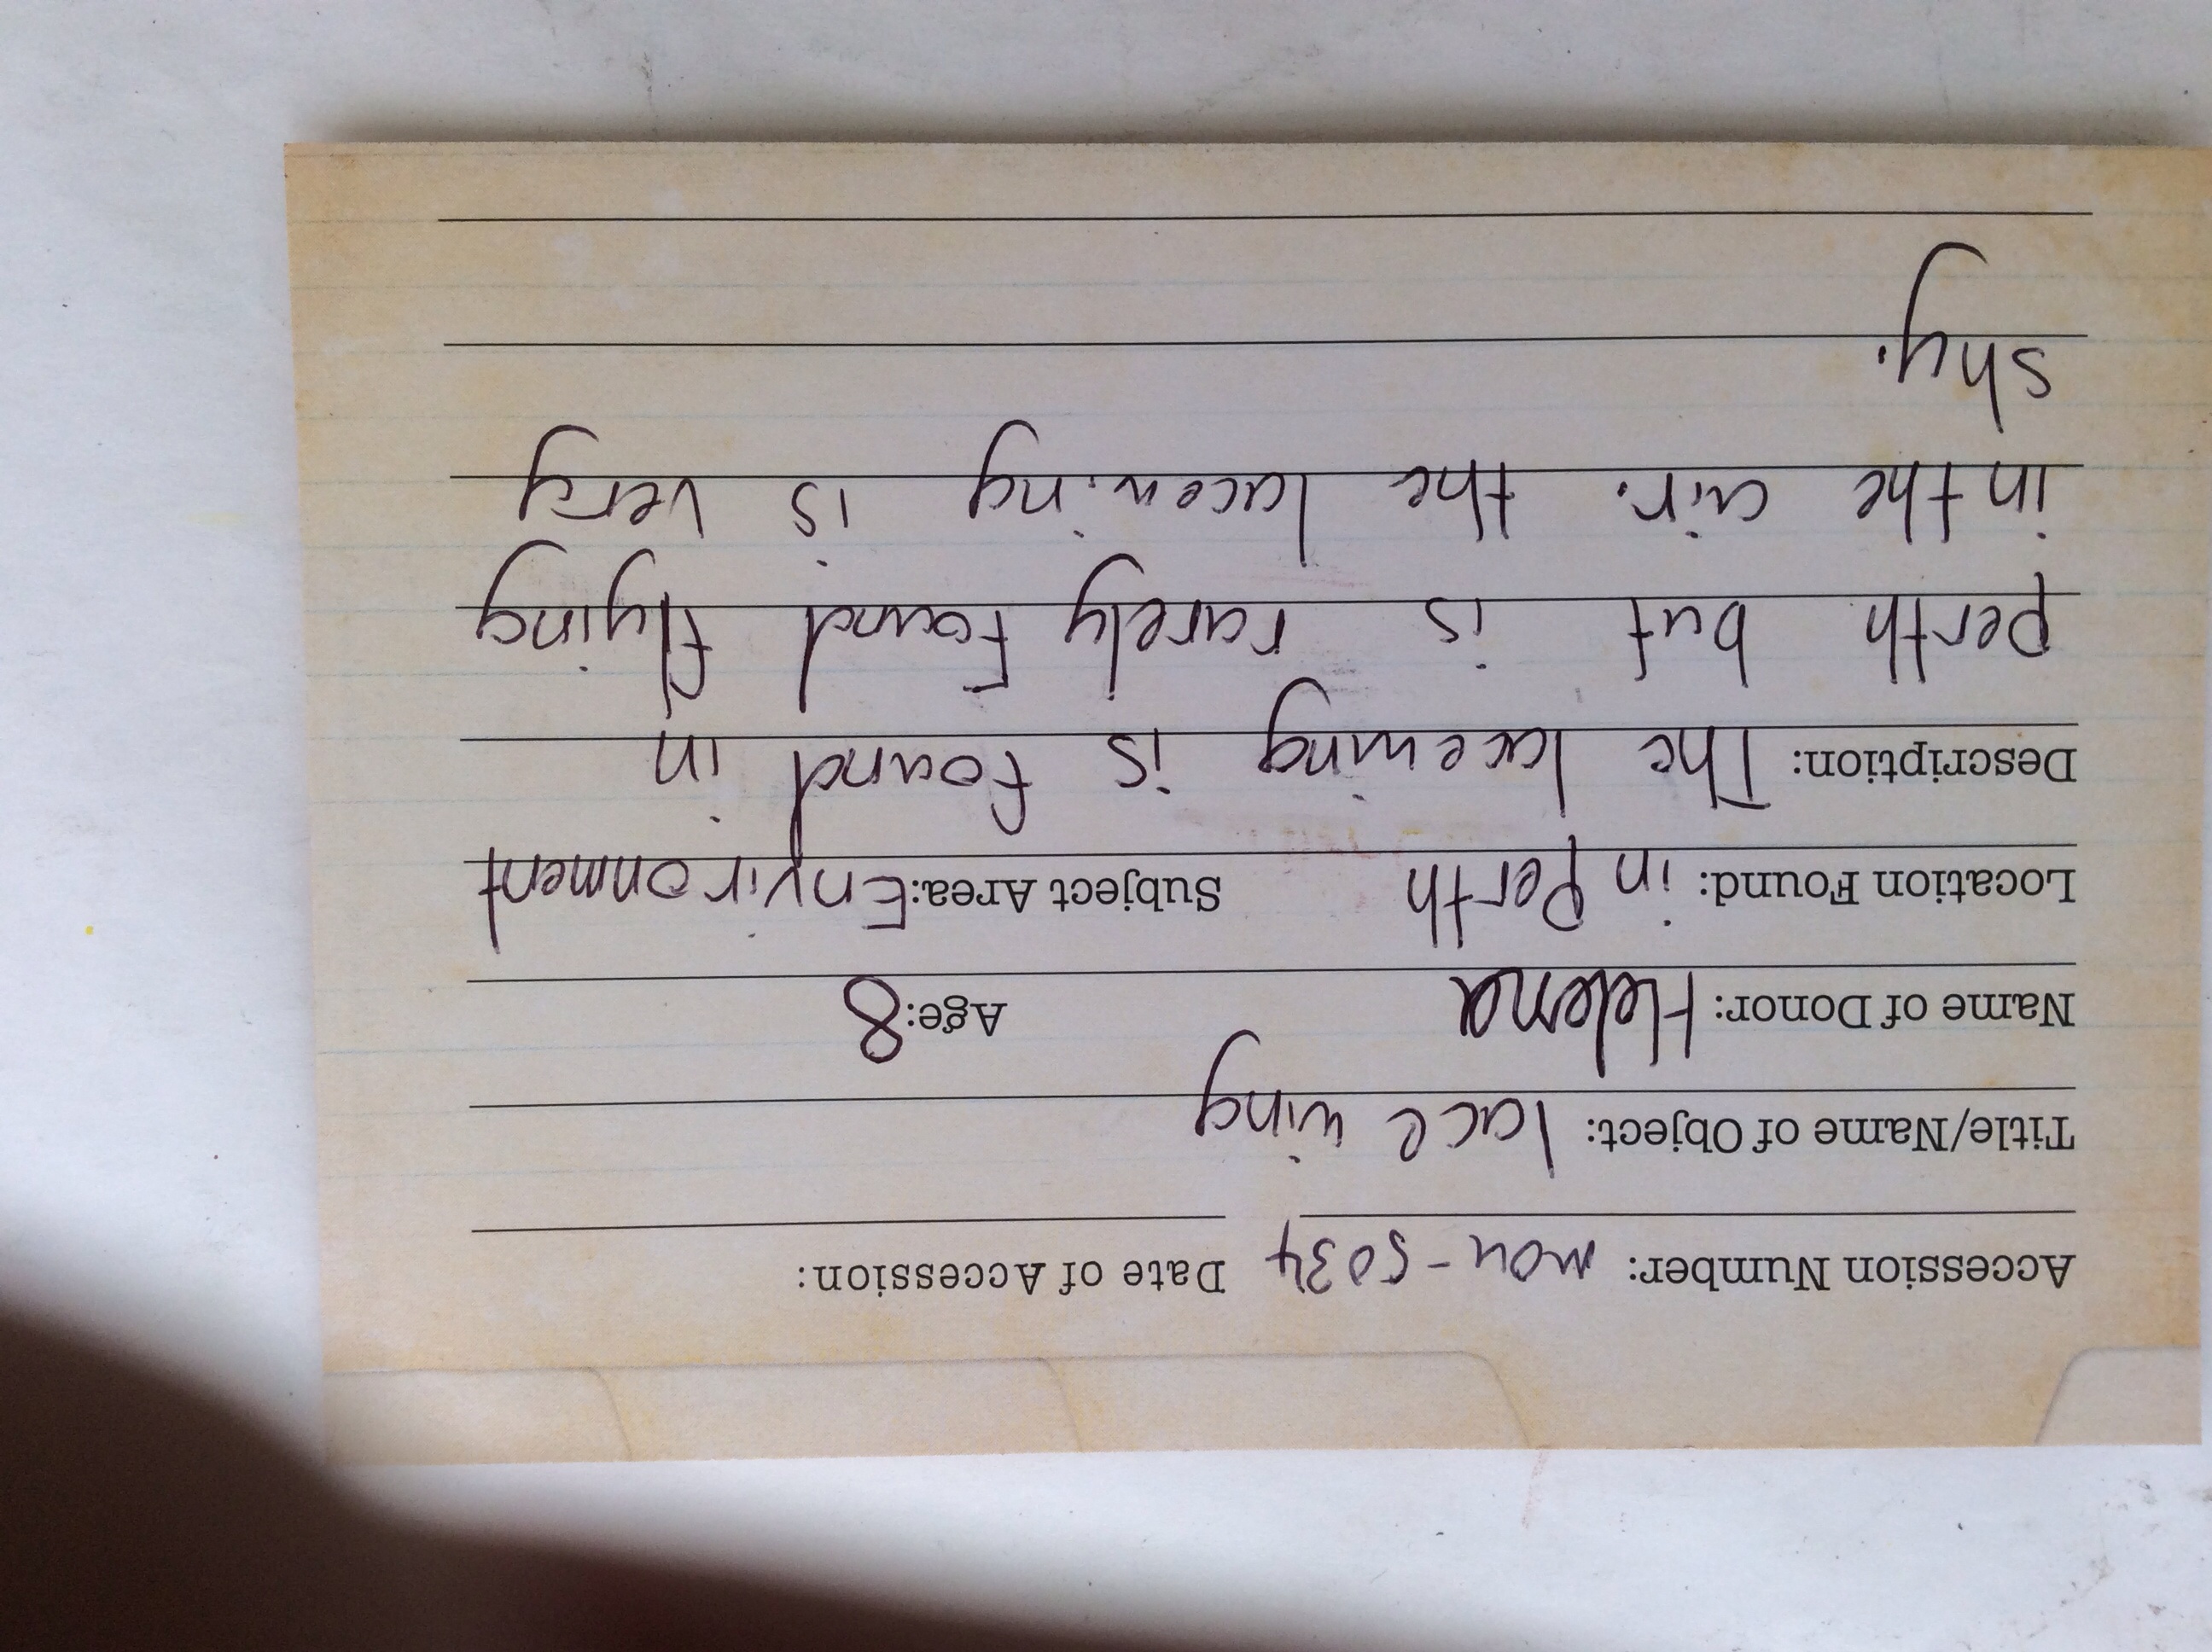 Accession Number: mou-5034 Date of Accession:
Title/Name of Object: lace wing
Name of Donor: Helena Age: 8
Location Found: in Perth Subject Area: Environment
Description: The lacewing is found in
perth but is rarely Found flying
in the air. the lacewing is very
shy.